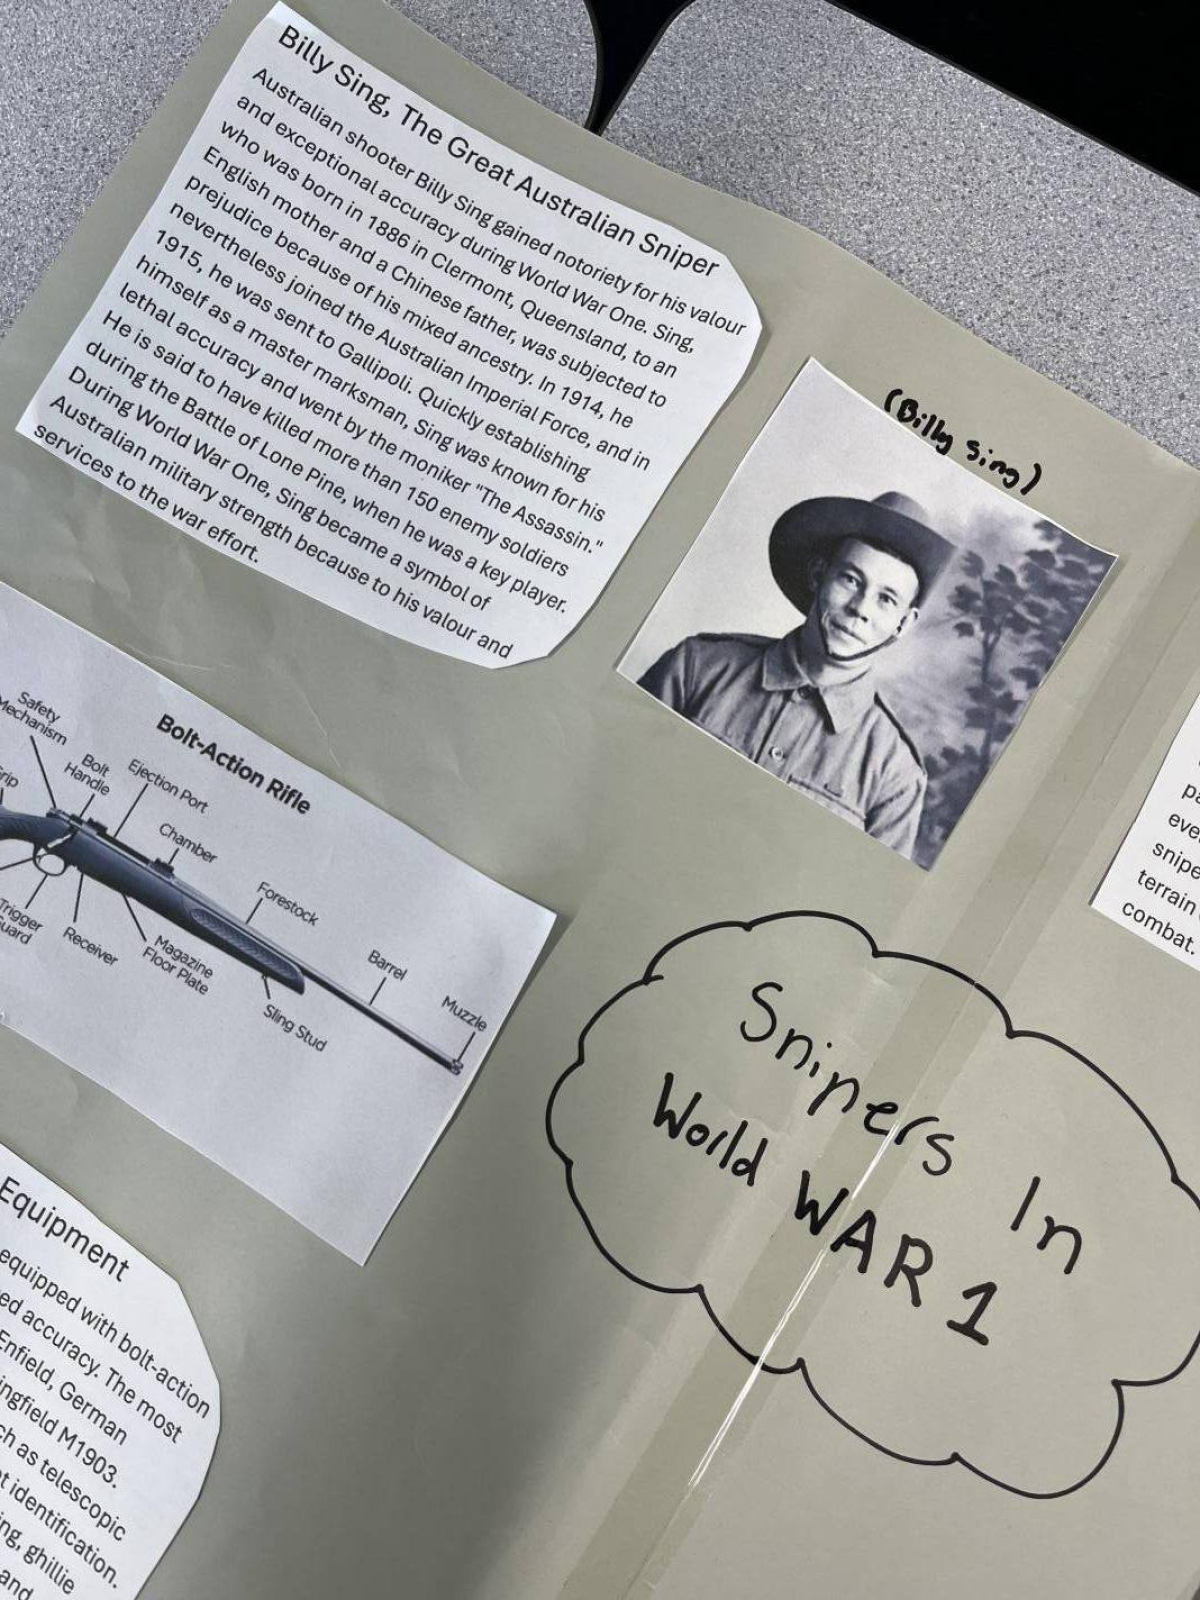 Billy Sing, The Great Australian Sniper
Australian shooter Billy Sing gained notoriety for his valour
and exceptional accuracy during World War One. Sing,
who was born in 1886 in Clermont, Queensland, to an
English mother and a Chinese father, was subjected to
prejudice because of his mixed ancestry. In 1914, he
nevertheless joined the Australian Imperial Force, and in
1915, he was sent to Gallipoli. Quickly establishing
himself as a master marksman, Sing was known for his
lethal accuracy and went by the moniker "The Assassin."
He is said to have killed more than 150 enemy soldiers
during the Battle of Lone Pine, when he was a key player.
During World War One, Sing became a symbol of
Australian military strength because to his valour and
services to the war effort.
(Billy Sing)
Bolt-Action Rifle
Safety
Mechanism
Bolt
Handle
Ejection Port
Chamber
Forestock
Barrel
Muzzle
Trigger
Receiver
Magazine
Floor Plate
Sling Stud
Snipers In
World WAR 1
terrain
combat.
Equipment
equipped with bolt-action
accuracy. The most
Enfield, German
M1903.
as telescopic
identification.
ghillie
and